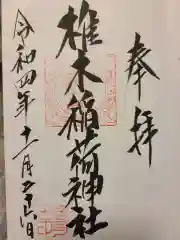 奉拝
椎木稲荷神社
令和四年十一月二十六日